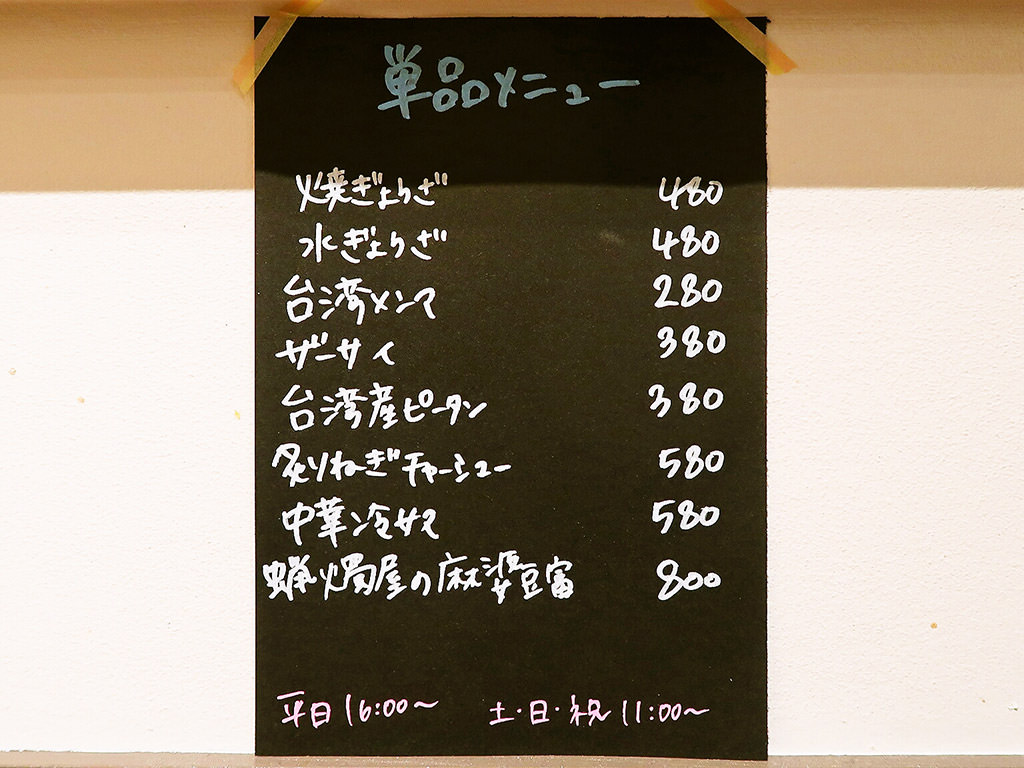 単品メニュー
焼ぎょうざ 480
水ぎょうざ 480
台湾メンマ 280
ザーサイ 380
台湾産ピータン 380
炙りねぎチャーシュー 580
中華冷ナス 580
蝋燭屋の麻婆豆富 800
平日16:00〜 土・日・祝11:00〜